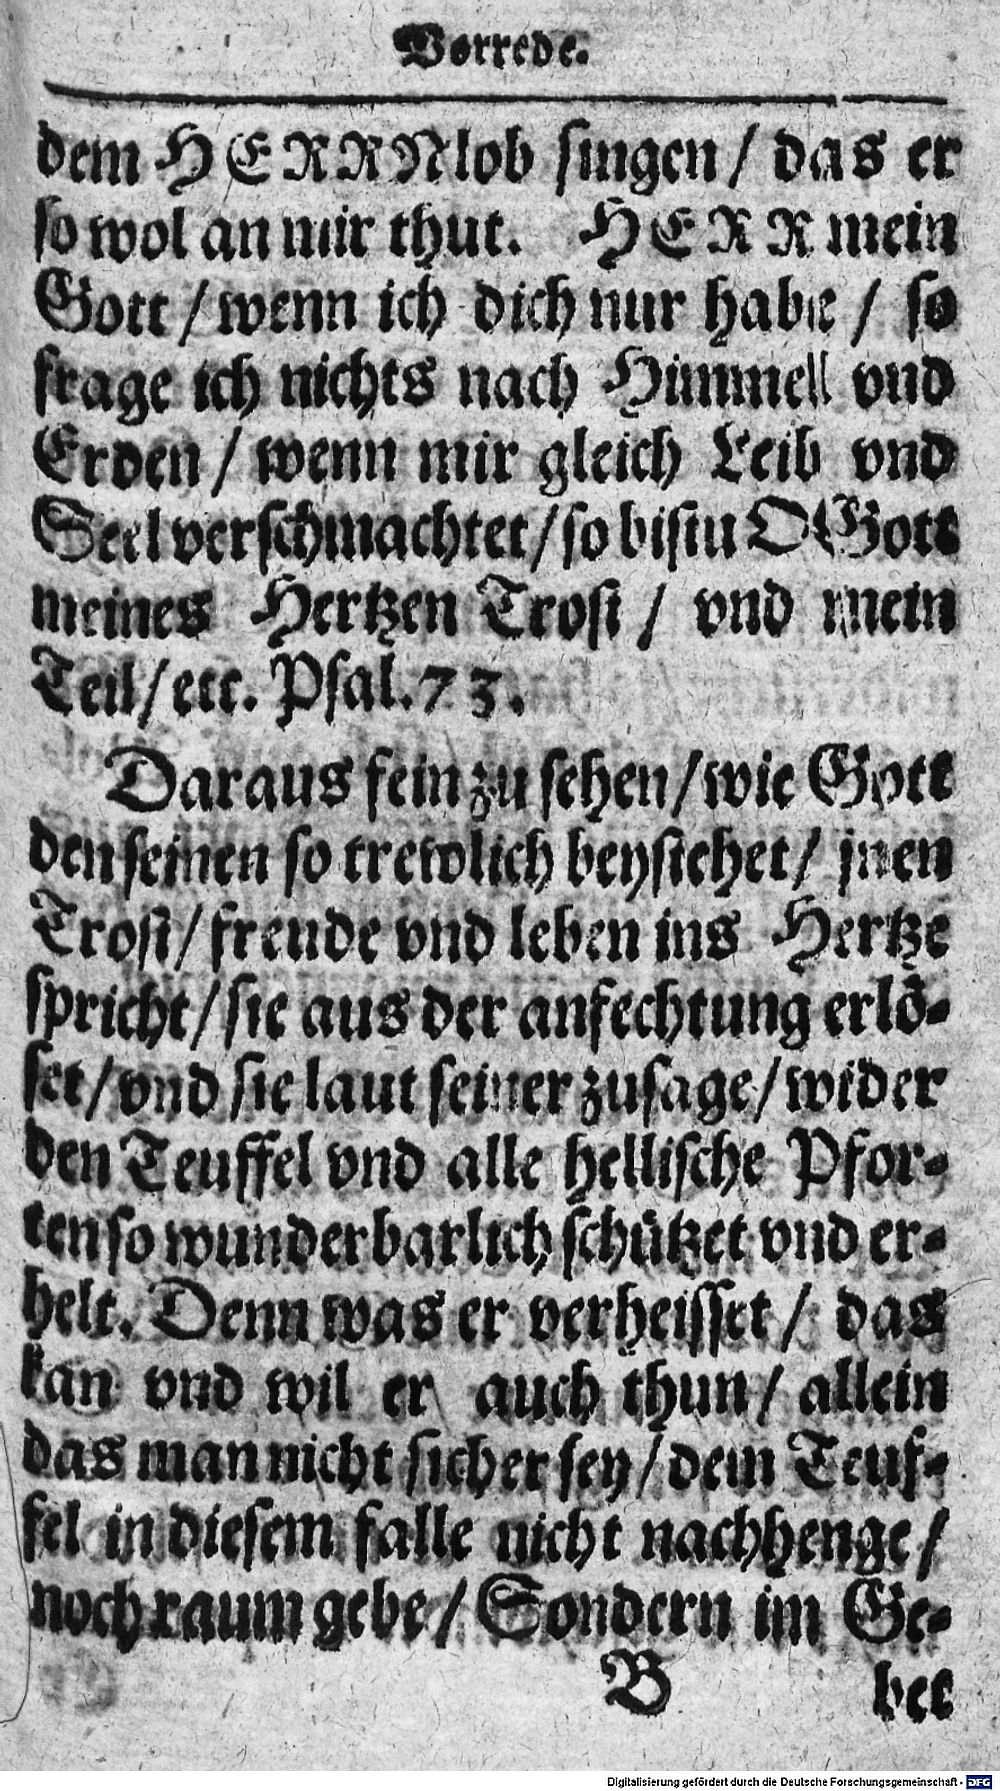 Vorrede.
dem HERRN lob singen / das er
so wol an mir thut. HERR mein
Gott / wenn ich dich nur habe / so
frage ich nichts nach Himmell vnd
Erden / wenn mir gleich Leib vnd
Seel verschmachtet / so bistu O Gott
meines Hertzen Trost / vnd mein
Teil / etc. Psal. 73.
Daraus fein zu sehen / wie Gott
den seinen so trewlich beystehet / jnen
Trost / freude vnd leben ins Hertze
spricht / sie aus der anfechtung erlö-
set / vnd sie laut seiner zusage / wider
den Teuffel vnd alle hellische Pfor-
ten so wunderbarlich schützet vnd er-
helt. Denn was er verheisset / das
kan vnd wil er auch thun / allein
das man nicht sicher sey / dem Teuf-
fel in diesem falle nicht nachhenge /
noch raum gebe / Sondern im Ge-
B bet
Digitalisierung gefördert durch die Deutsche Forschungsgemeinschaft - DFG